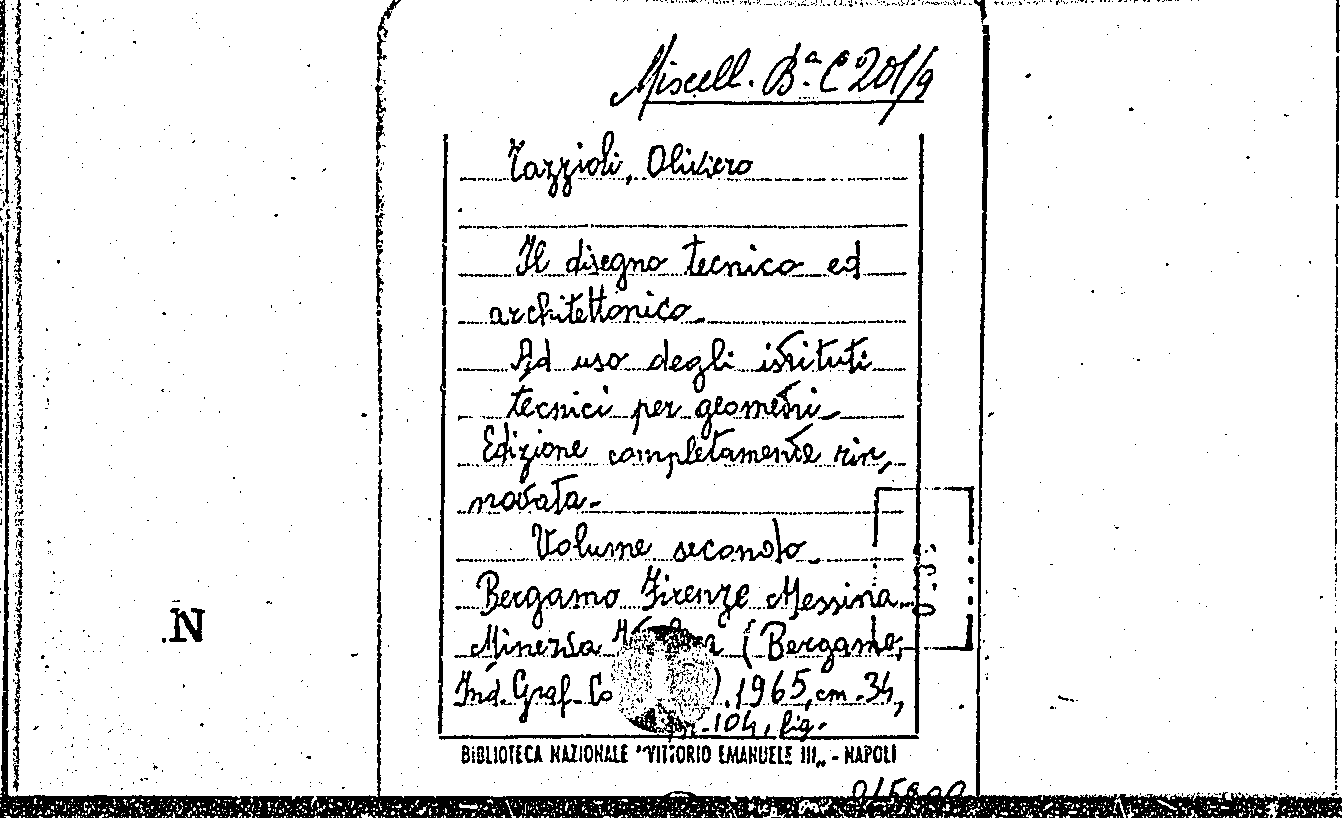 Miscell. Bª. C 201/9
Tazzioli, Oliviero
Il disegno tecnico ed
architettonico.
Ad uso degli istituti
tecnici per geometri.
Edizione completamente rin,
novata.
Volume secondo.
Bergamo Firenze Messina.
N
Minerva (Bergamo,
Ind. Graf. ). 1965, cm. 34,
104, fig.
BIBLIOTECA NAZIONALE "VITTORIO EMANUELE III„ - NAPOLI